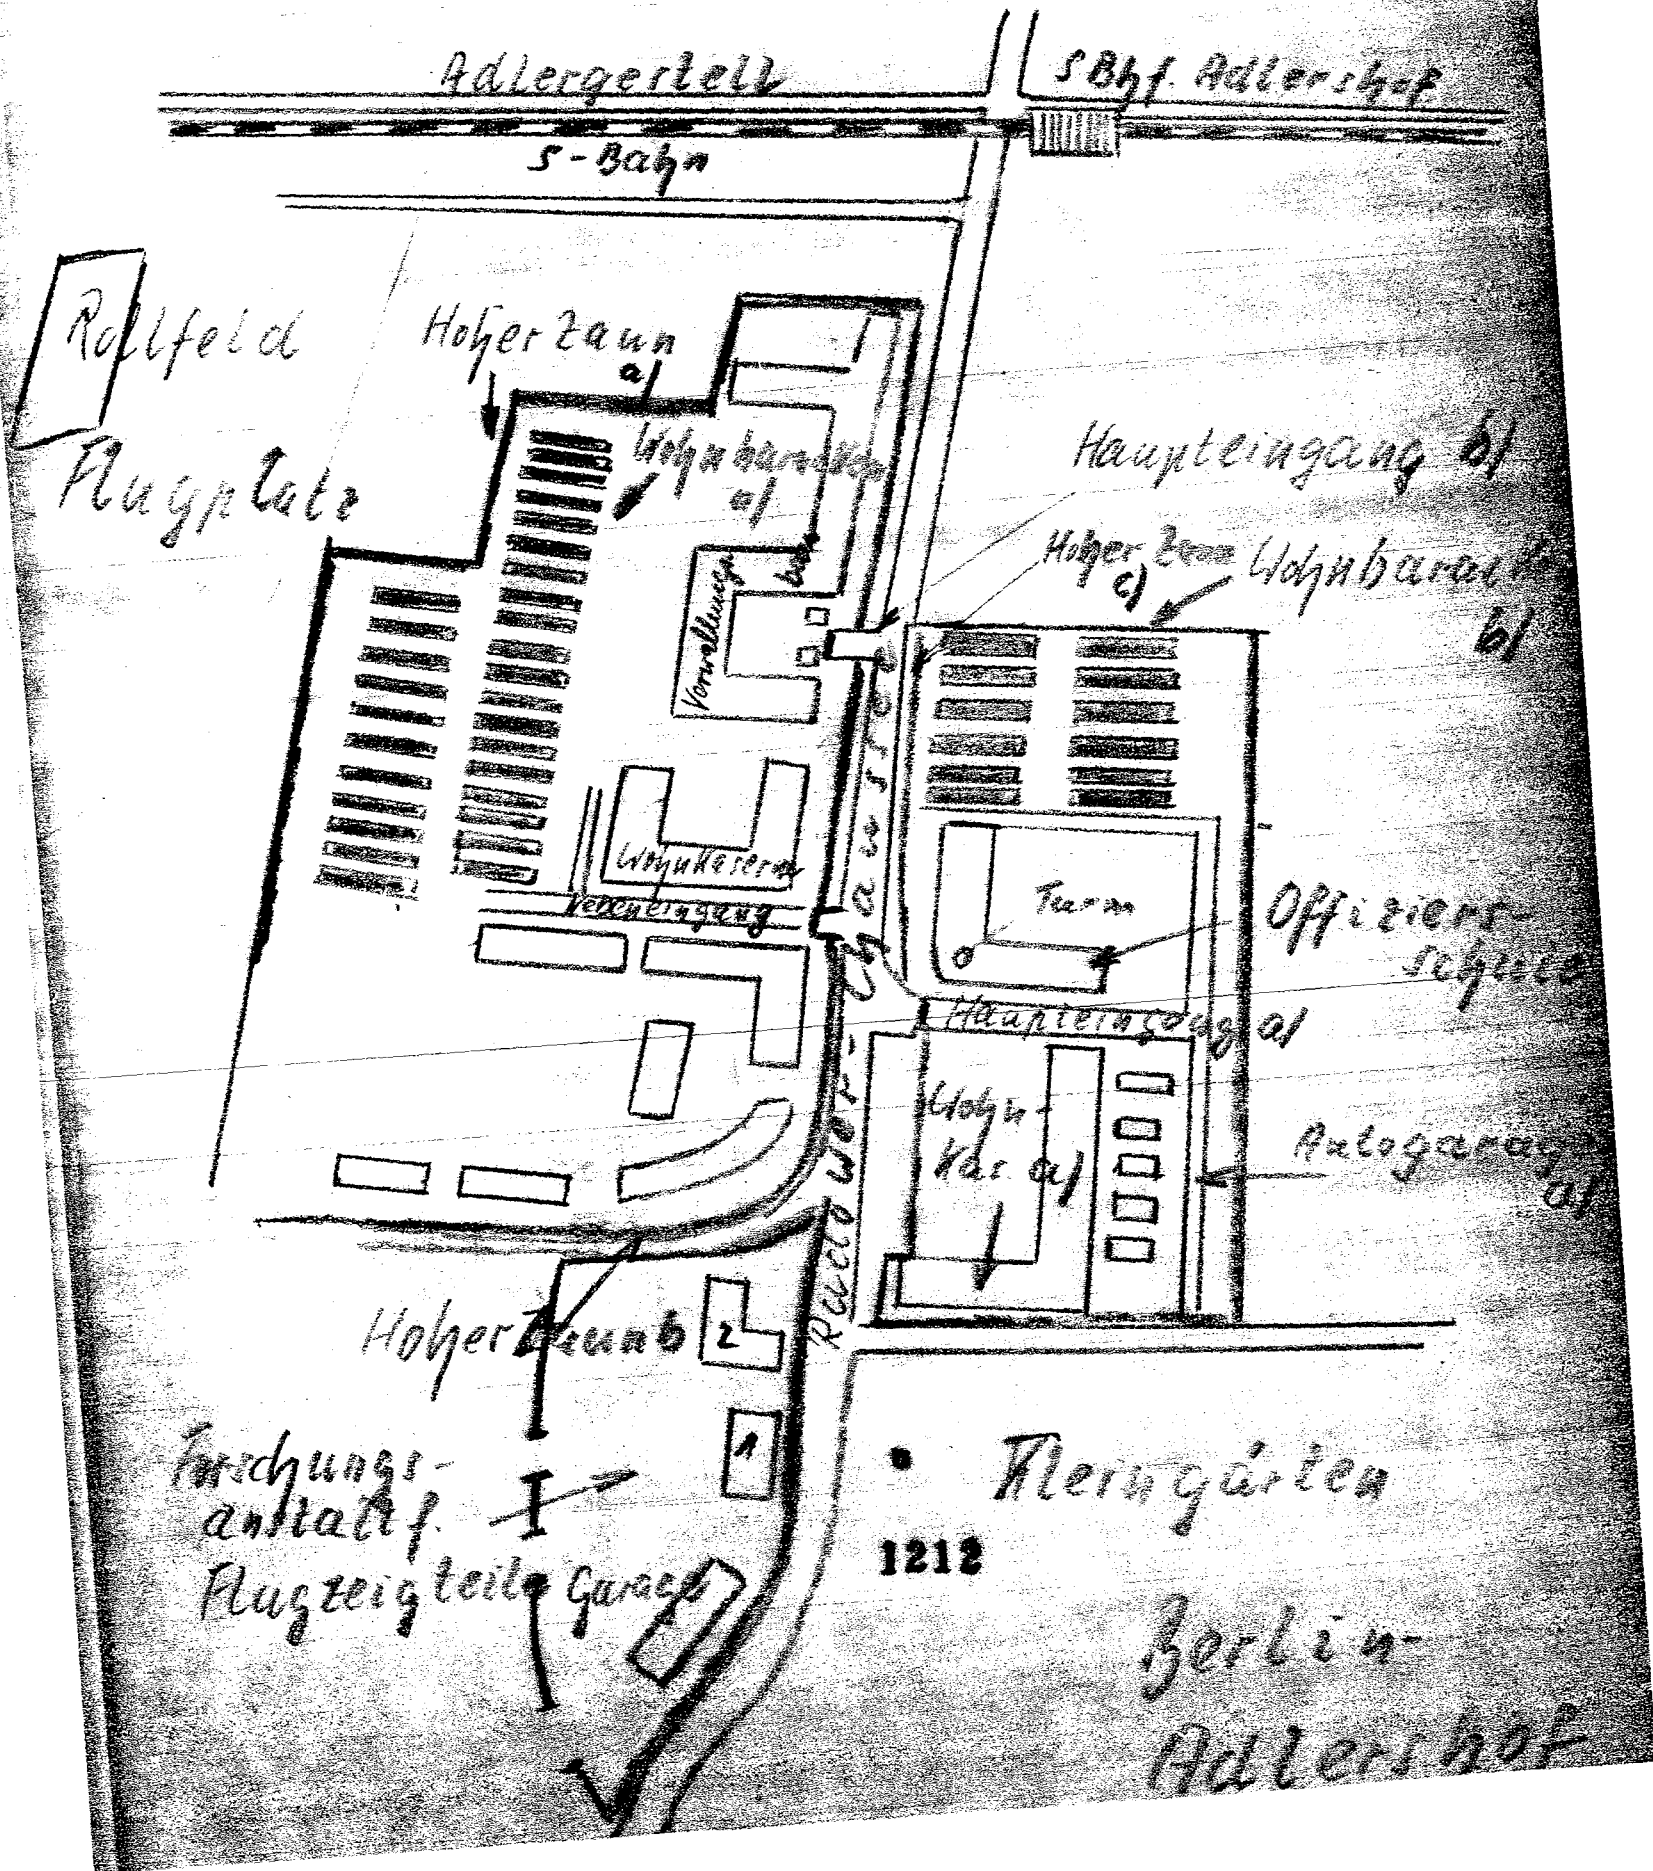 Adlergestell
S Bhf. Adlershof
S-Bahn
Rollfeld
Hoher Zaun
a
Flugplatz
Wohnbaracken
a)
Haupteingang b)
Hoher Zaun
c)
Wohnbarack
b)
Verwaltung
Wohnkaserne
Nebeneingang
Turm
Offiziers-
schule
Haupteingang a)
Rudower-Chaussee
Wohn-
Kas. a)
Autogarage
a)
Hoher Zaun b
2
1
Forschungs-
anstalt f.
Flugzeigteile
Garage
Kleingärten
1212
Berlin-
Adlershof